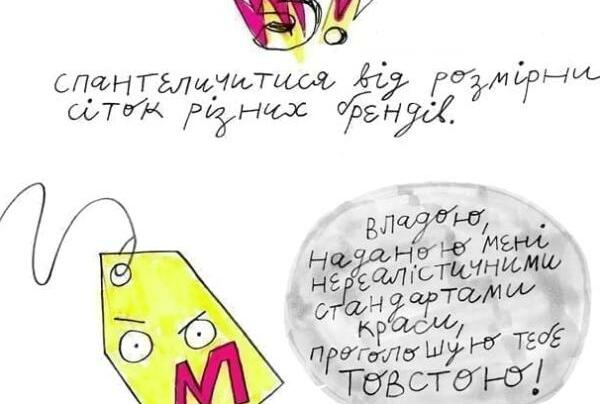 спантеличитися від розмірни
сіток різних брендів.
Владою,
наданою мені
нереалістичними
стандартами
краси,
проголошую тебе
ТОВСТОЮ!
M